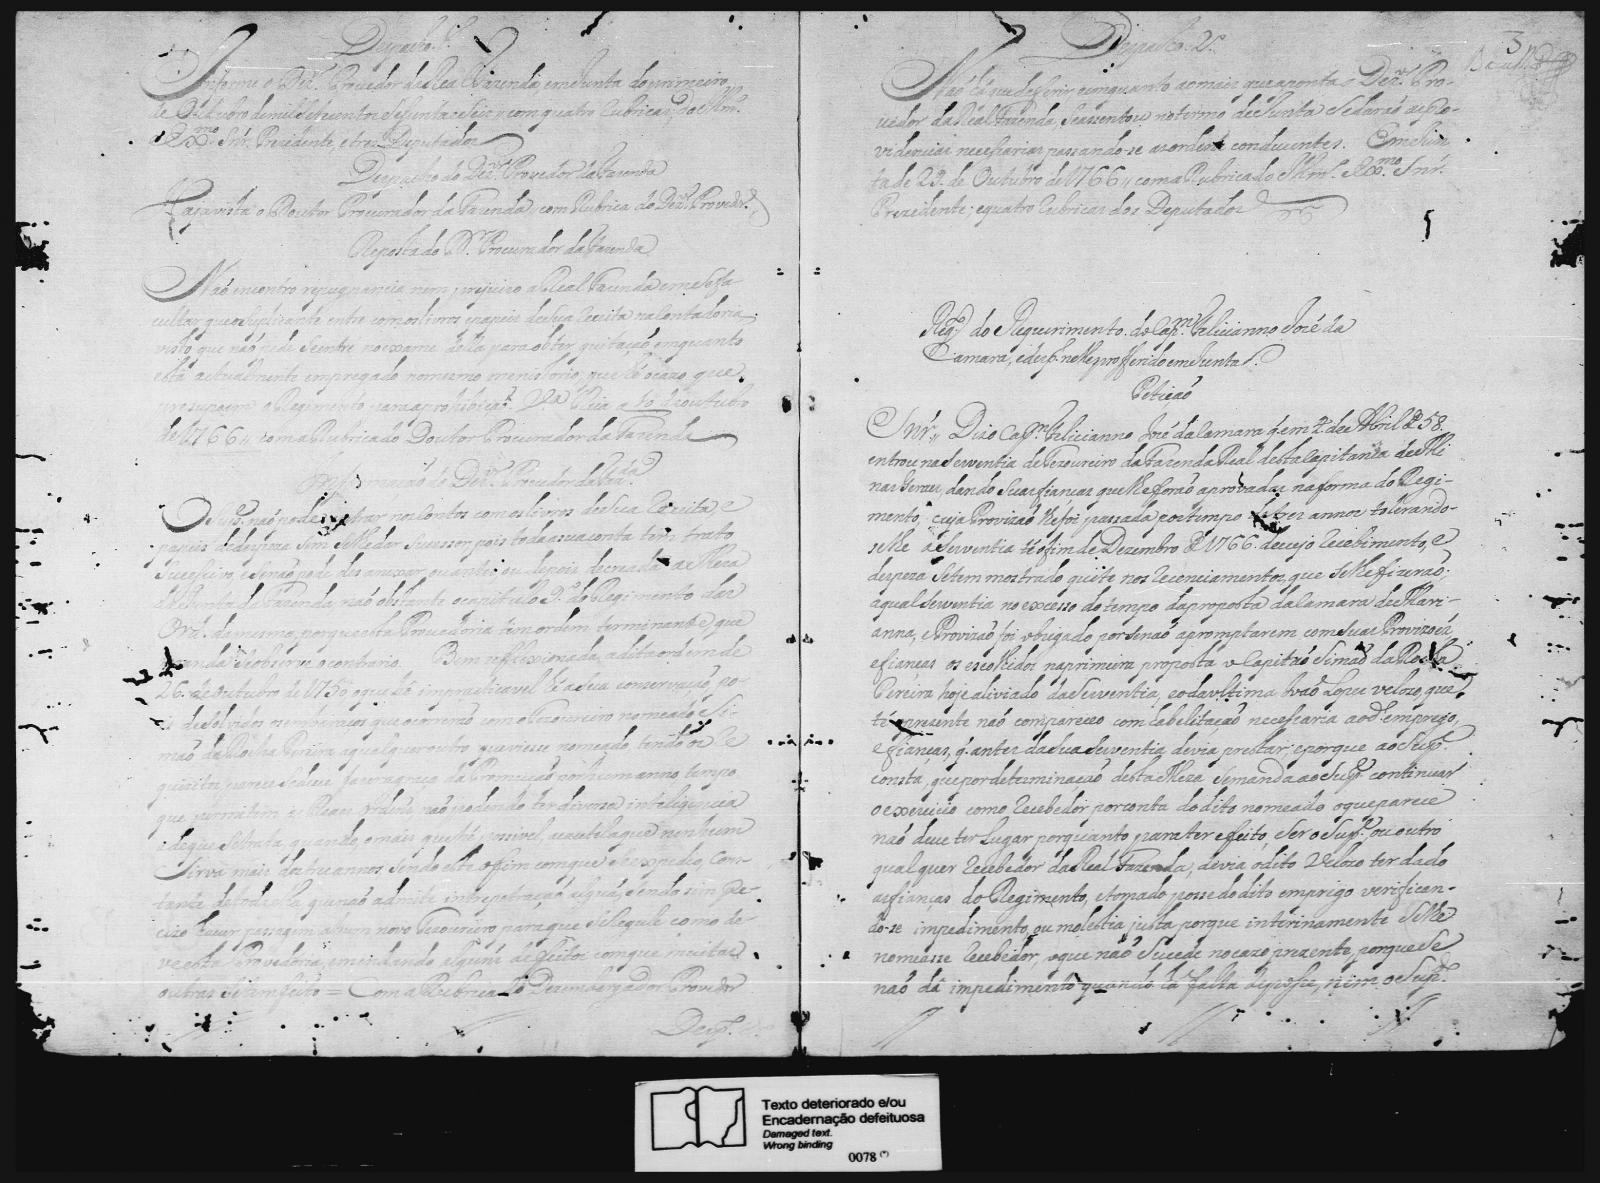 Despacho 1º
Informe o Dezor. Provedor da Real Fazenda em Junta do primeiro
de Outubro de mil e sete centos e sesenta e seis, com quatro Rubricas do Illmo.
Exmo. Snr. Prezidente, e tres Deputados
Despacho do Dezor. Provedor da Fazenda
Faça vista o Doutor Procurador da Fazenda, com Rubrica do Dezor. Provedor.
Reposta do Dr. Procurador da Fazenda
Naõ encontro repugnancia nem prejuizo a Real Fazenda em se fa-
cultar que o Suplicante entre com os livros e papeis de sua Receita na Contadoria,
visto que naõ pede se entre no exame della para obter quitaçaõ emquanto
está actualmente empregado no mesmo menisterio, que hé o cazo, que
presupoem o Regimento para a prohibiçaõ. Va. Rica a 10 de outubro
de 1766 com a Rubrica do Doutor Procurador da Fazenda
Informaçaõ do Dezor. Provedor da Fazda.
O Supe. naõ pode entrar nos Contos com os livros de sua Receita e
papeis de despeza sem se lhe dar sucessor pois toda a sua conta tem trato
sucessivo, e se naõ pode desanexar, ou antes, ou depois de creada a Meza
da Junta da Fazenda, naõ obstante o capitulo 9º do Regimento das
Orz. da mesma, porque esta Provedoria tem ordem terminante que
manda se observe o contrario. Bem reflexionada, a dita ordem de
26 de outubro de 1750 o que hé impraticavel hé a sua conservaçaõ, de-
pois de solvidos os embaraços que ocorreraõ com o Tezoureiro nomeado Si-
maõ da Rocha Pereira a qual quer outro que viesse nomeado, tendo os Re
quizitos, parece se deve fazer a graça da Promuçaõ por hum anno, tempo
que permitem as Reaes Ordens, naõ podendo ter diversa inteligencia
e de que se trata, quando, o mais que he possivel, acautela que nenhum
Sirva mais de tres annos sendo este o fim com que se expedio, cons-
tante de toda ella que naõ admite intrepetraçaõ algûa, sendo sim pre-
cizo haver passagem a hum novo Tezoureiro para que se Regule como de-
ve esta Provedoria, emendando alguns defeitos com que muitas
outras se tem feito = Com a Rubrica do Dezembargador Provedor
Desp.
3
Despacho 2º
Naõ há que deferir emquanto ao mais que aponta o Dezor. Pro-
vedor da Real Fazenda, Se assentou no termo de Junta se daraõ as Pro-
videncias necessarias passando-se as ordens conducentes. Em Jun
ta de 23 de Outubro de 1766 com a Rubrica do Illmo. Exmo. Snr.
Prezidente, e quatro Rubricas dos Deputados
Rego. do Requerimento do Capm. Felicianno José da
Camara, e desp. nelle profferido em Junta
Petiçaõ
Snr. Diz o Capm. Felicianno José da Camara q. em 2 de Abril de 58
entrou na serventia de Tezoureiro da Fazenda Real desta Capitania de Mi
nas Geraes, dando suas fianças que lhe foraõ aprovadas na forma do Regi-
mento, cuja Provizaõ lhe foi passada por tempo de tres annos tolerando-
se lhe a serventia té o fim de Dezembro de 1766 de cujo Recebimento, e
despeza se tem mostrado quite nos Recenciamentos, que se lhe fizeraõ,
a qual serventia no excesso do tempo da proposta da Camara de Mari-
anna, e Provizaõ foi obrigado por se naõ apromptarem com suas Provizoẽs
e fianças os escolhidos na primeira proposta o Capitaõ Simaõ da Rocha
Pereira hoje aliviado da serventia, e o da vltima Joaõ Lopes Velozo, que
té o prezente naõ compareceo com abelitaçaõ necessaria ao do. emprego,
e fianças, q. antes da sua serventia devia prestar, e porque ao Supe.
consta, que por determinaçaõ desta Meza se manda ao Supe. continuar
o exercicio como Recebedor por conta do dito nomeado o que parece
naõ deve ter lugar porquanto para ter efeito, ser o Supe. ou outro
qual quer Recebedor da Real Fazenda, devia o dito Velozo ter dado
as fianças do Regimento, e tomado posse do dito emprego verifican-
do-se impedimento, ou molestia justa porque interinamente se lhe
nomeasse Recebedor, o que naõ sucede no cazo prezente, porque se
naõ dá impedimento quando há falta de posse, nem o Supe.
Texto deteriorado e/ou
Encadernação defeituosa
Damaged text.
Wrong binding
0078 (*)